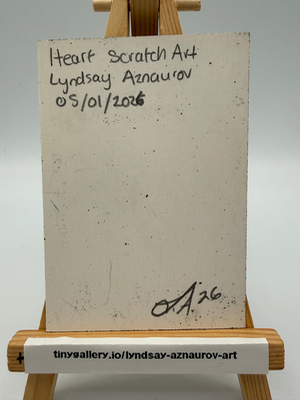 Heart Scratch Art
Lyndsay Aznaurov
05/01/2026
L.A. 26
tinygallery.io/lyndsay-aznaurov-art